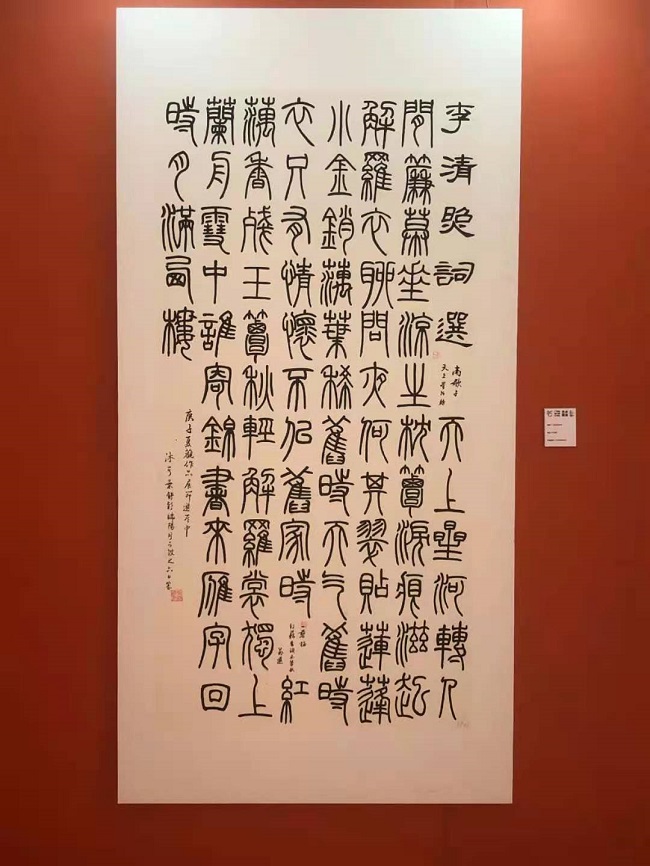 李清照詞選
南歌子
天上星河轉
天上星河轉人
間簾幕垂涼生枕簟淚痕滋起
解羅衣聊問夜何其翠貼蓮蓬
小金銷藕葉稀舊時天氣舊時
衣只有情懷不似舊家時
一剪梅
紅藕香殘玉簟秋
紅
藕香殘玉簟秋輕解羅裳獨上
蘭舟雲中誰寄錦書來雁字回
時月滿西樓
庚子夏